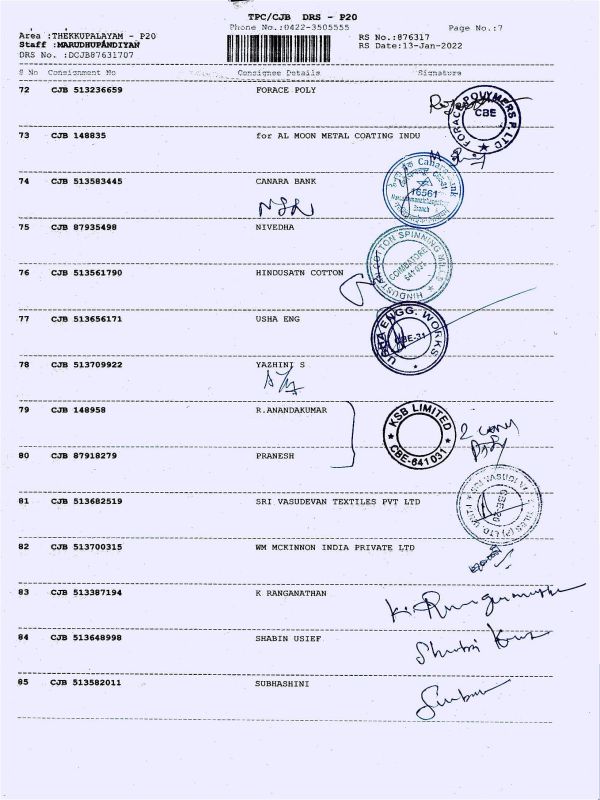 TPC/CJB DRS - P20
Phone No.:0422-3505555
Page No.:7
Area :THEKKUPALAYAM - P20
RS No.:876317
Staff :MARUDHUPANDIYAN
RS Date:13-Jan-2022
DRS No. :DCJB87631707
S No Consignment No Consignee Details Signature
72 CJB 513236659 FORACE POLY
FORACE POLYMERS P. LTD
CBE
73 CJB 148835 for AL MOON METAL COATING INDU
74 CJB 513583445 CANARA BANK
Canara Bank
18561
Branch
75 CJB 87935498 NIVEDHA
76 CJB 513561790 HINDUSATN COTTON
HINDUSTAN COTTON SPINNING MILLS
COIMBATORE
641 031
77 CJB 513656171 USHA ENG
USHA ENGG. WORKS
CBE-31
78 CJB 513709922 YAZHINI S
79 CJB 148958 R.ANANDAKUMAR
KSB LIMITED
CBE-641031
80 CJB 87918279 PRANESH
81 CJB 513682519 SRI VASUDEVAN TEXTILES PVT LTD
82 CJB 513700315 WM MCKINNON INDIA PRIVATE LTD
83 CJB 513387194 K RANGANATHAN
84 CJB 513648998 SHABIN USIEF
85 CJB 513582011 SUBHASHINI